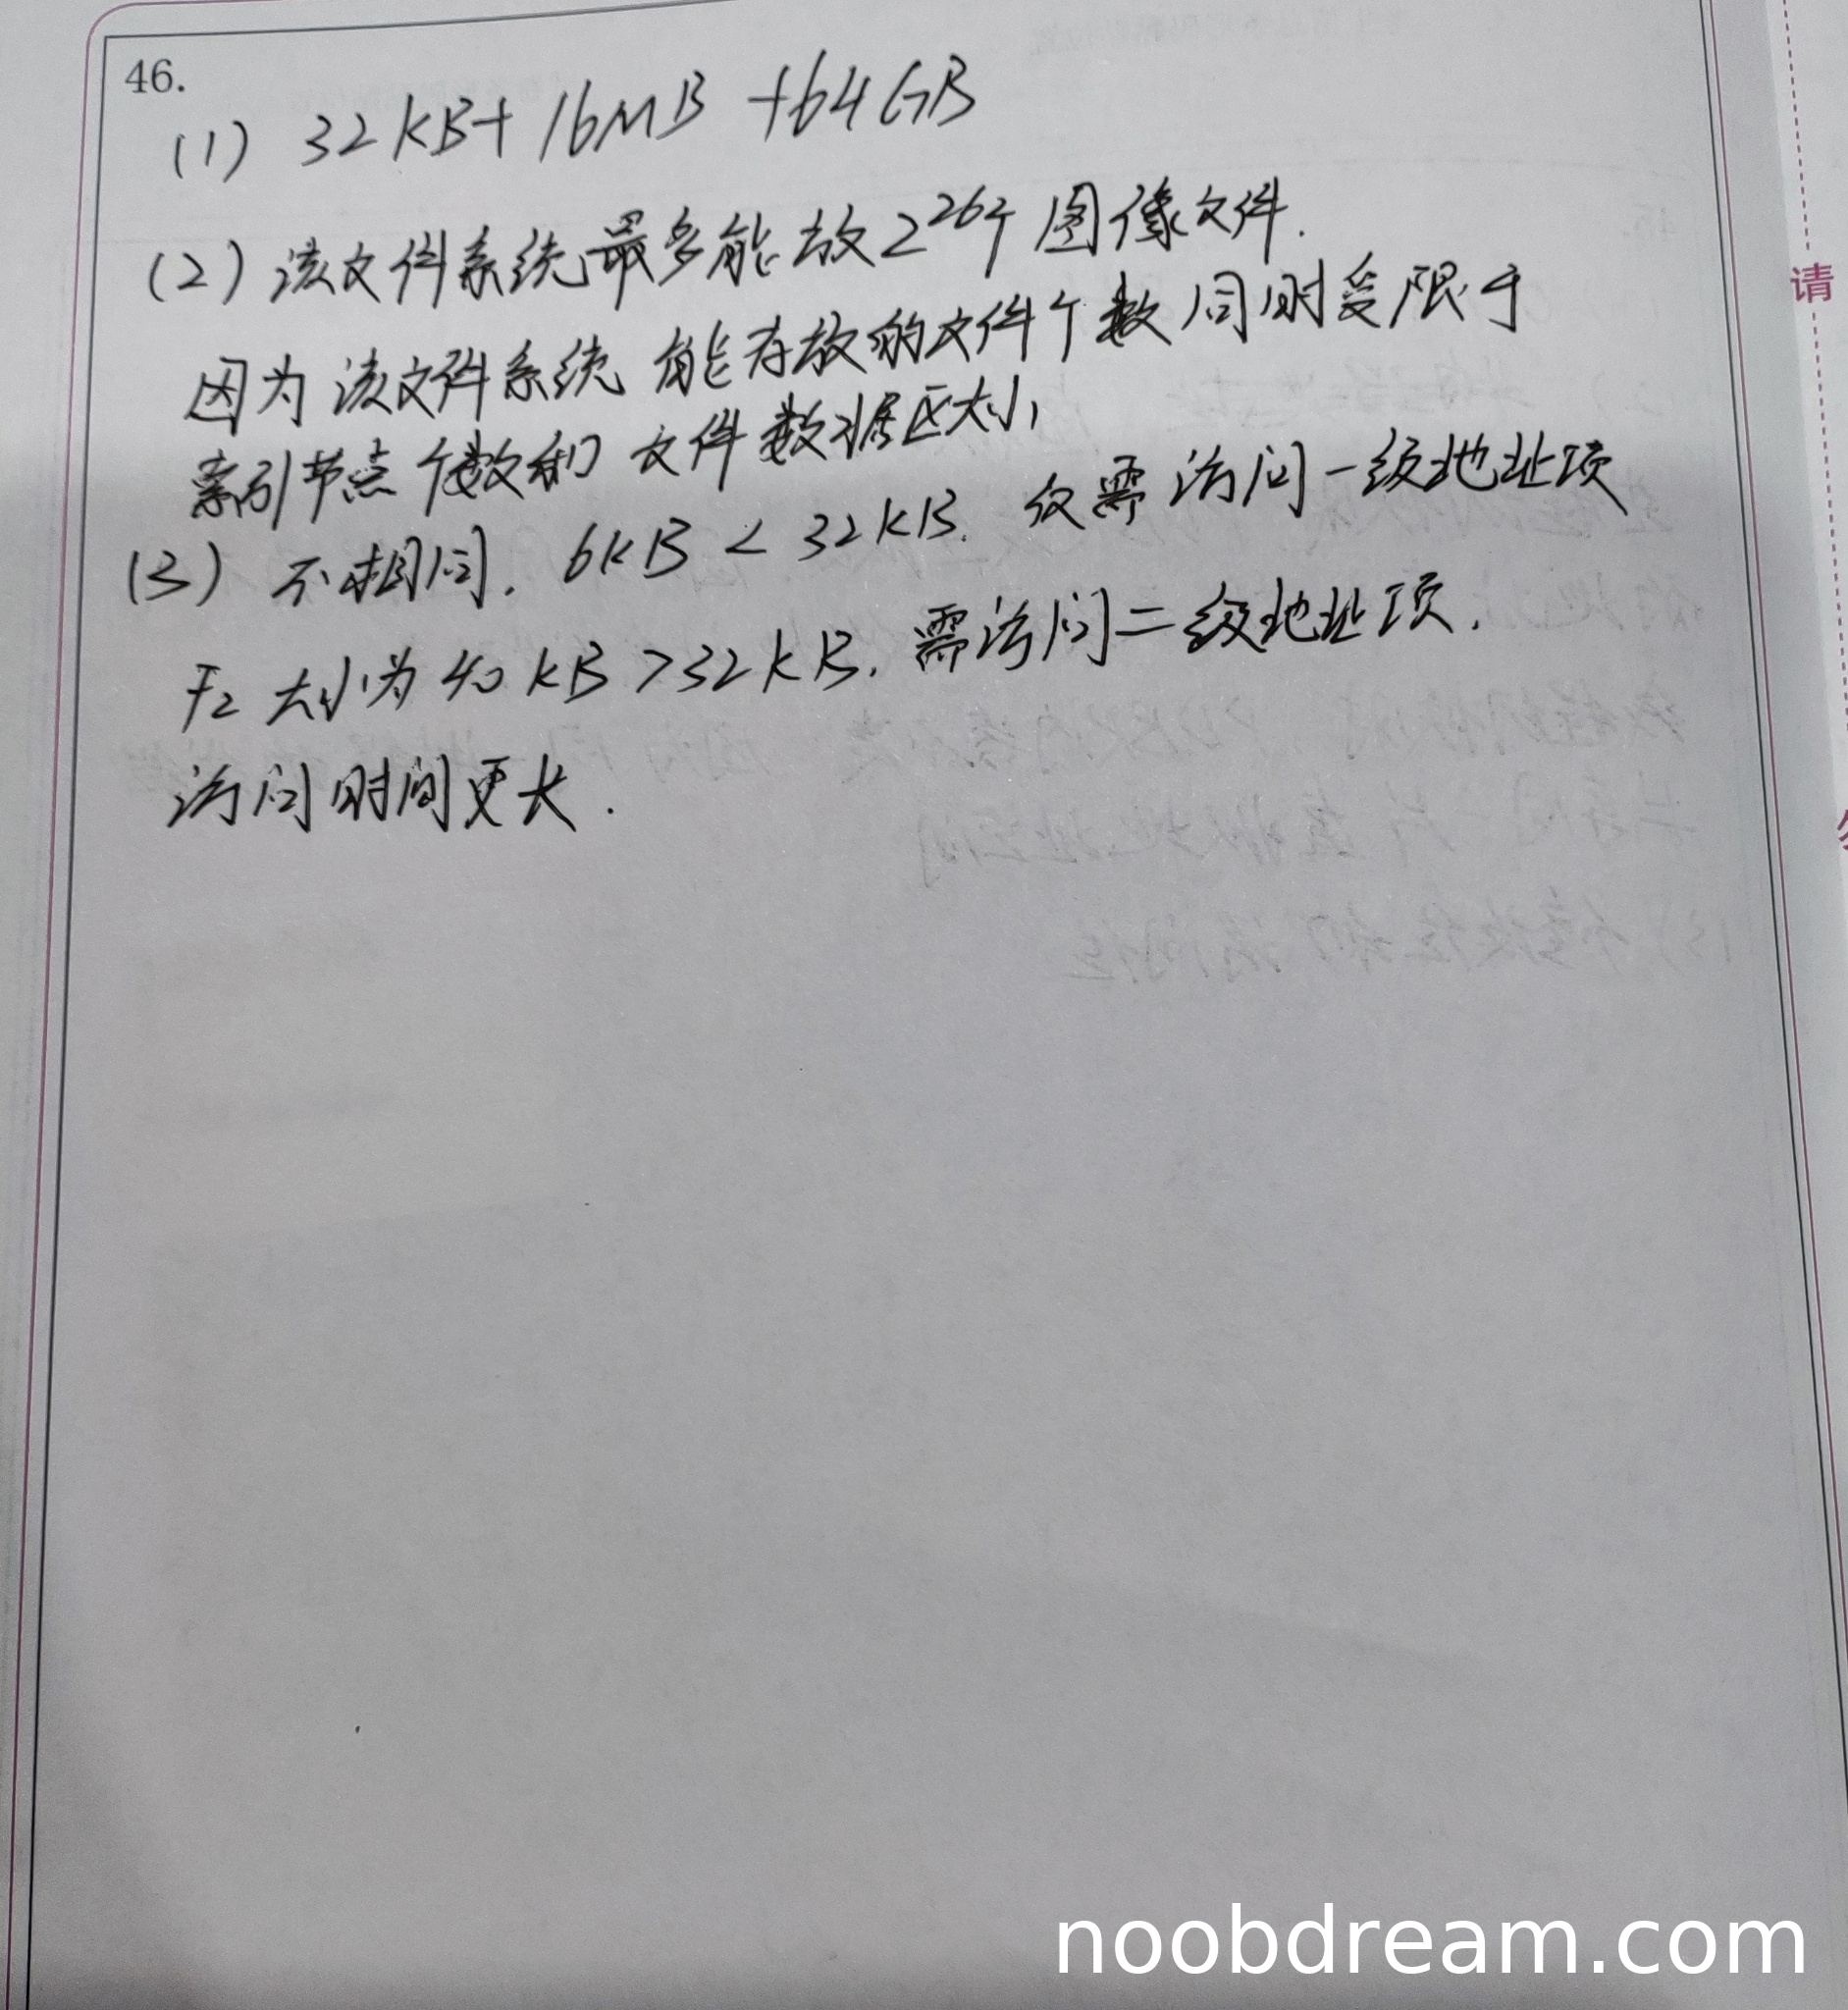 46.
(1) 32KB+16MB+64GB
(2) 该文件系统最多能放2^26个图像文件.
因为该文件系统能存放的文件个数同时受限于
索引节点个数和文件数据区大小
(3) 不相同. 6KB < 32KB. 仅需访问一级地址项
F2 大小为 40KB >32KB. 需访问二级地址项.
访问时间更长.
请
noobdream.com